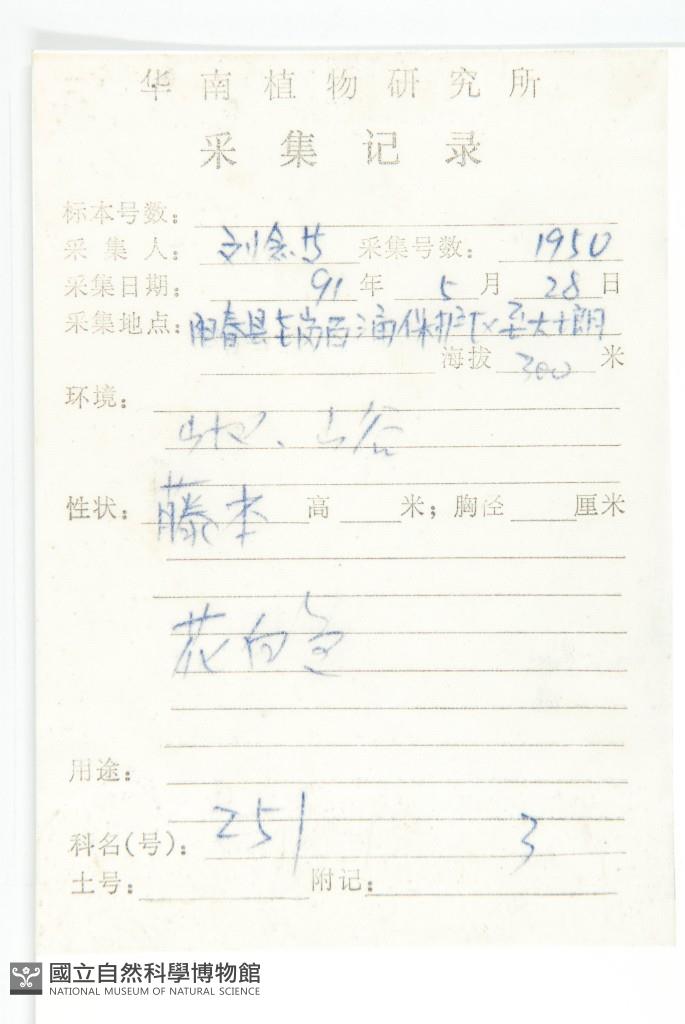 华南植物研究所
采集记录
标本号数:
采集人: 刘念等 采集号数: 1950
采集日期: 91年 5月 28日
采集地点: 阳春县 百涌保护区至大
海拔 300 米
环境:
山地、山谷
性状: 藤本 高 米; 胸径 厘米
花白色
用途:
科名(号): 251 3
土号: 附记:
國立自然科學博物館
NATIONAL MUSEUM OF NATURAL SCIENCE